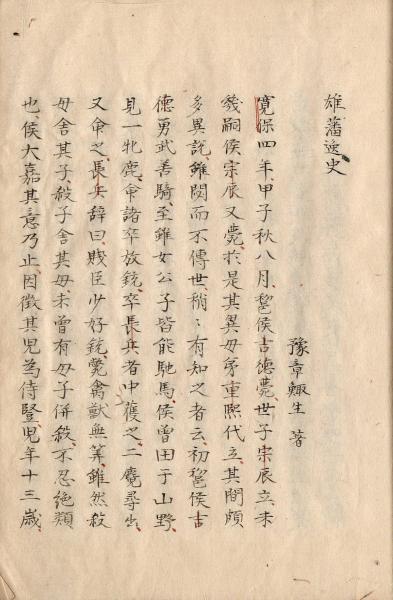 雄藩逸史
豫章鯫生 著
寛保四年、甲子秋八月、䣋侯吉德薨、世子宗辰立、未
幾嗣侯宗辰又薨、於是其異母弟重熙代立、其間頗
多異説、雖閟而不傳世、稍〻有知之者云、初䣋侯吉
德勇武善騎、至雖女公子皆能馳馬、侯曽田于山野、
見一牝鹿、命諸卒放銃、卒長兵者中獲之、二麑尋出、
又命之、長兵辭曰、賤臣少好銃、斃禽獣無筭、雖然殺
母舎其子、殺子舎其母、未曽有母子併殺、不忍絶類
也、侯大嘉其意乃止、因徴其児為侍豎、児年十三歳、